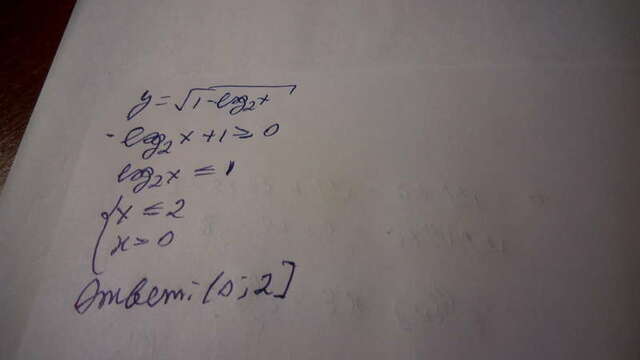 y = √(1-log₂x)
-log₂x + 1 ≥ 0
log₂x ≤ 1
{ x ≤ 2
x > 0
Ответ: (0; 2]